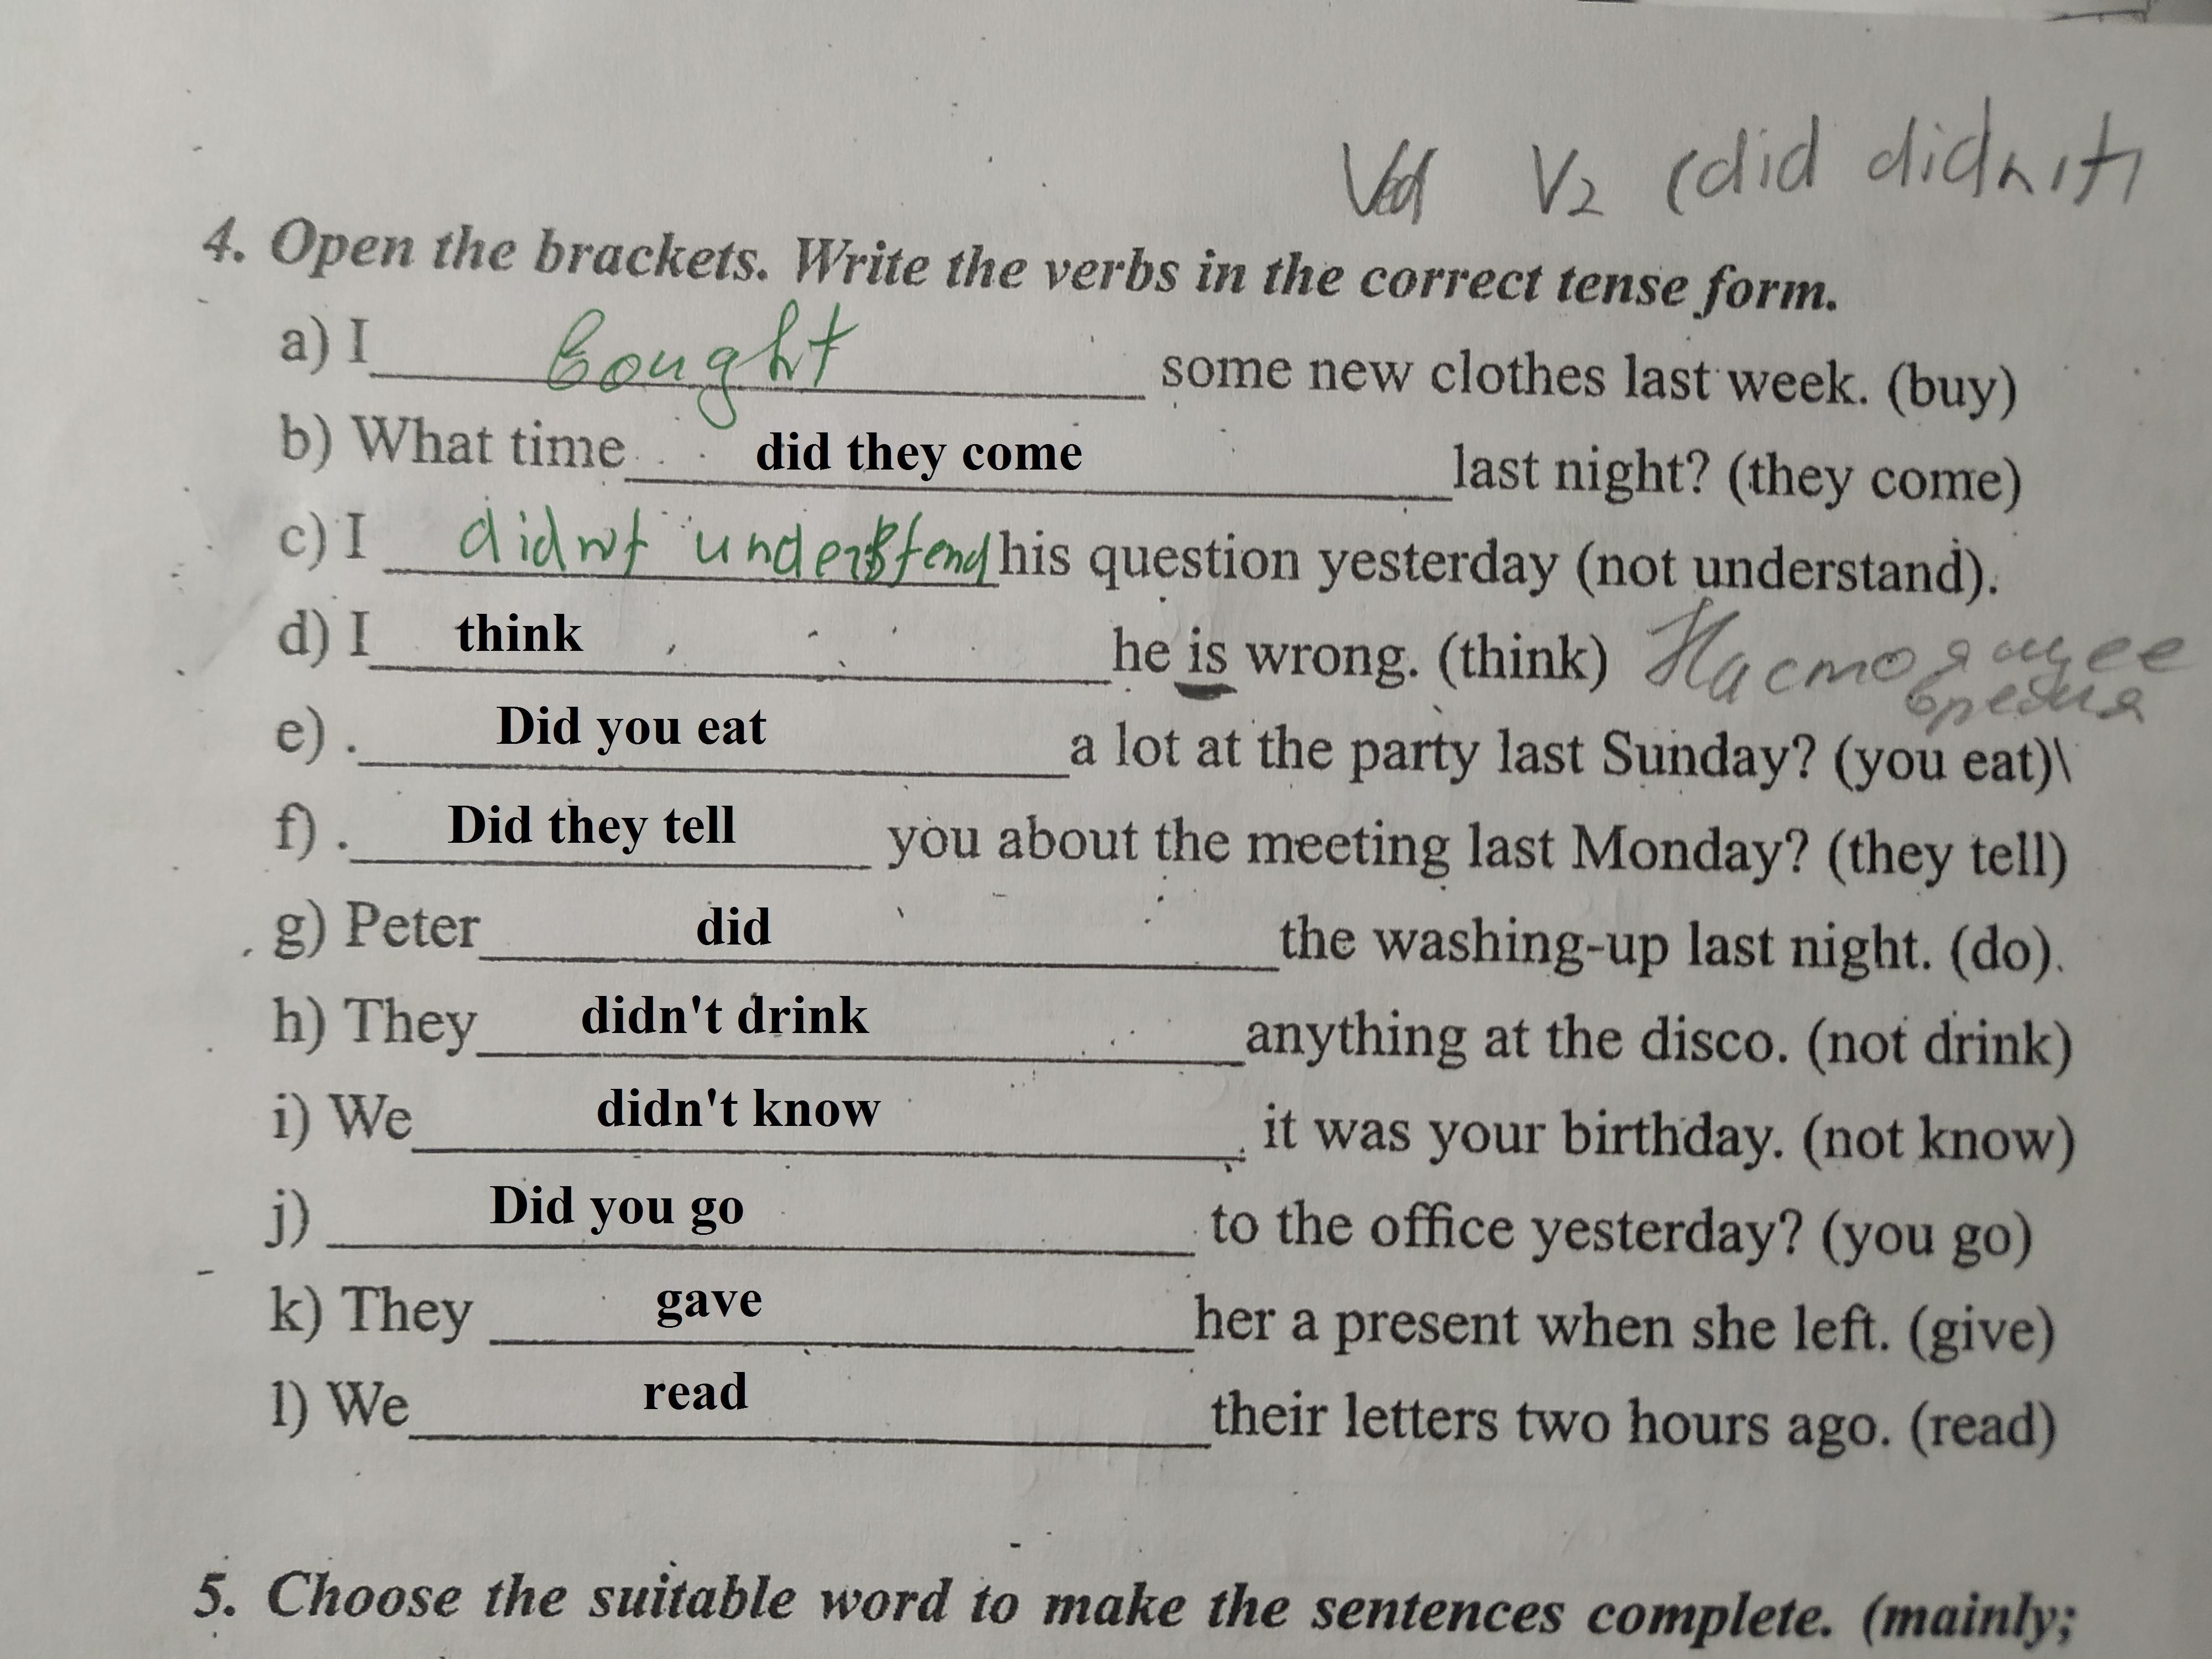 Ved V2 (did didn't)
4. Open the brackets. Write the verbs in the correct tense form.
a) I bought some new clothes last week. (buy)
b) What time did they come last night? (they come)
c) I didnt understend his question yesterday (not understand).
d) I think he is wrong. (think) Настоящее время
e) . Did you eat a lot at the party last Sunday? (you eat)\
f) . Did they tell you about the meeting last Monday? (they tell)
g) Peter did the washing-up last night. (do).
h) They didn't drink anything at the disco. (not drink)
i) We didn't know it was your birthday. (not know)
j) Did you go to the office yesterday? (you go)
k) They gave her a present when she left. (give)
l) We read their letters two hours ago. (read)
5. Choose the suitable word to make the sentences complete. (mainly;